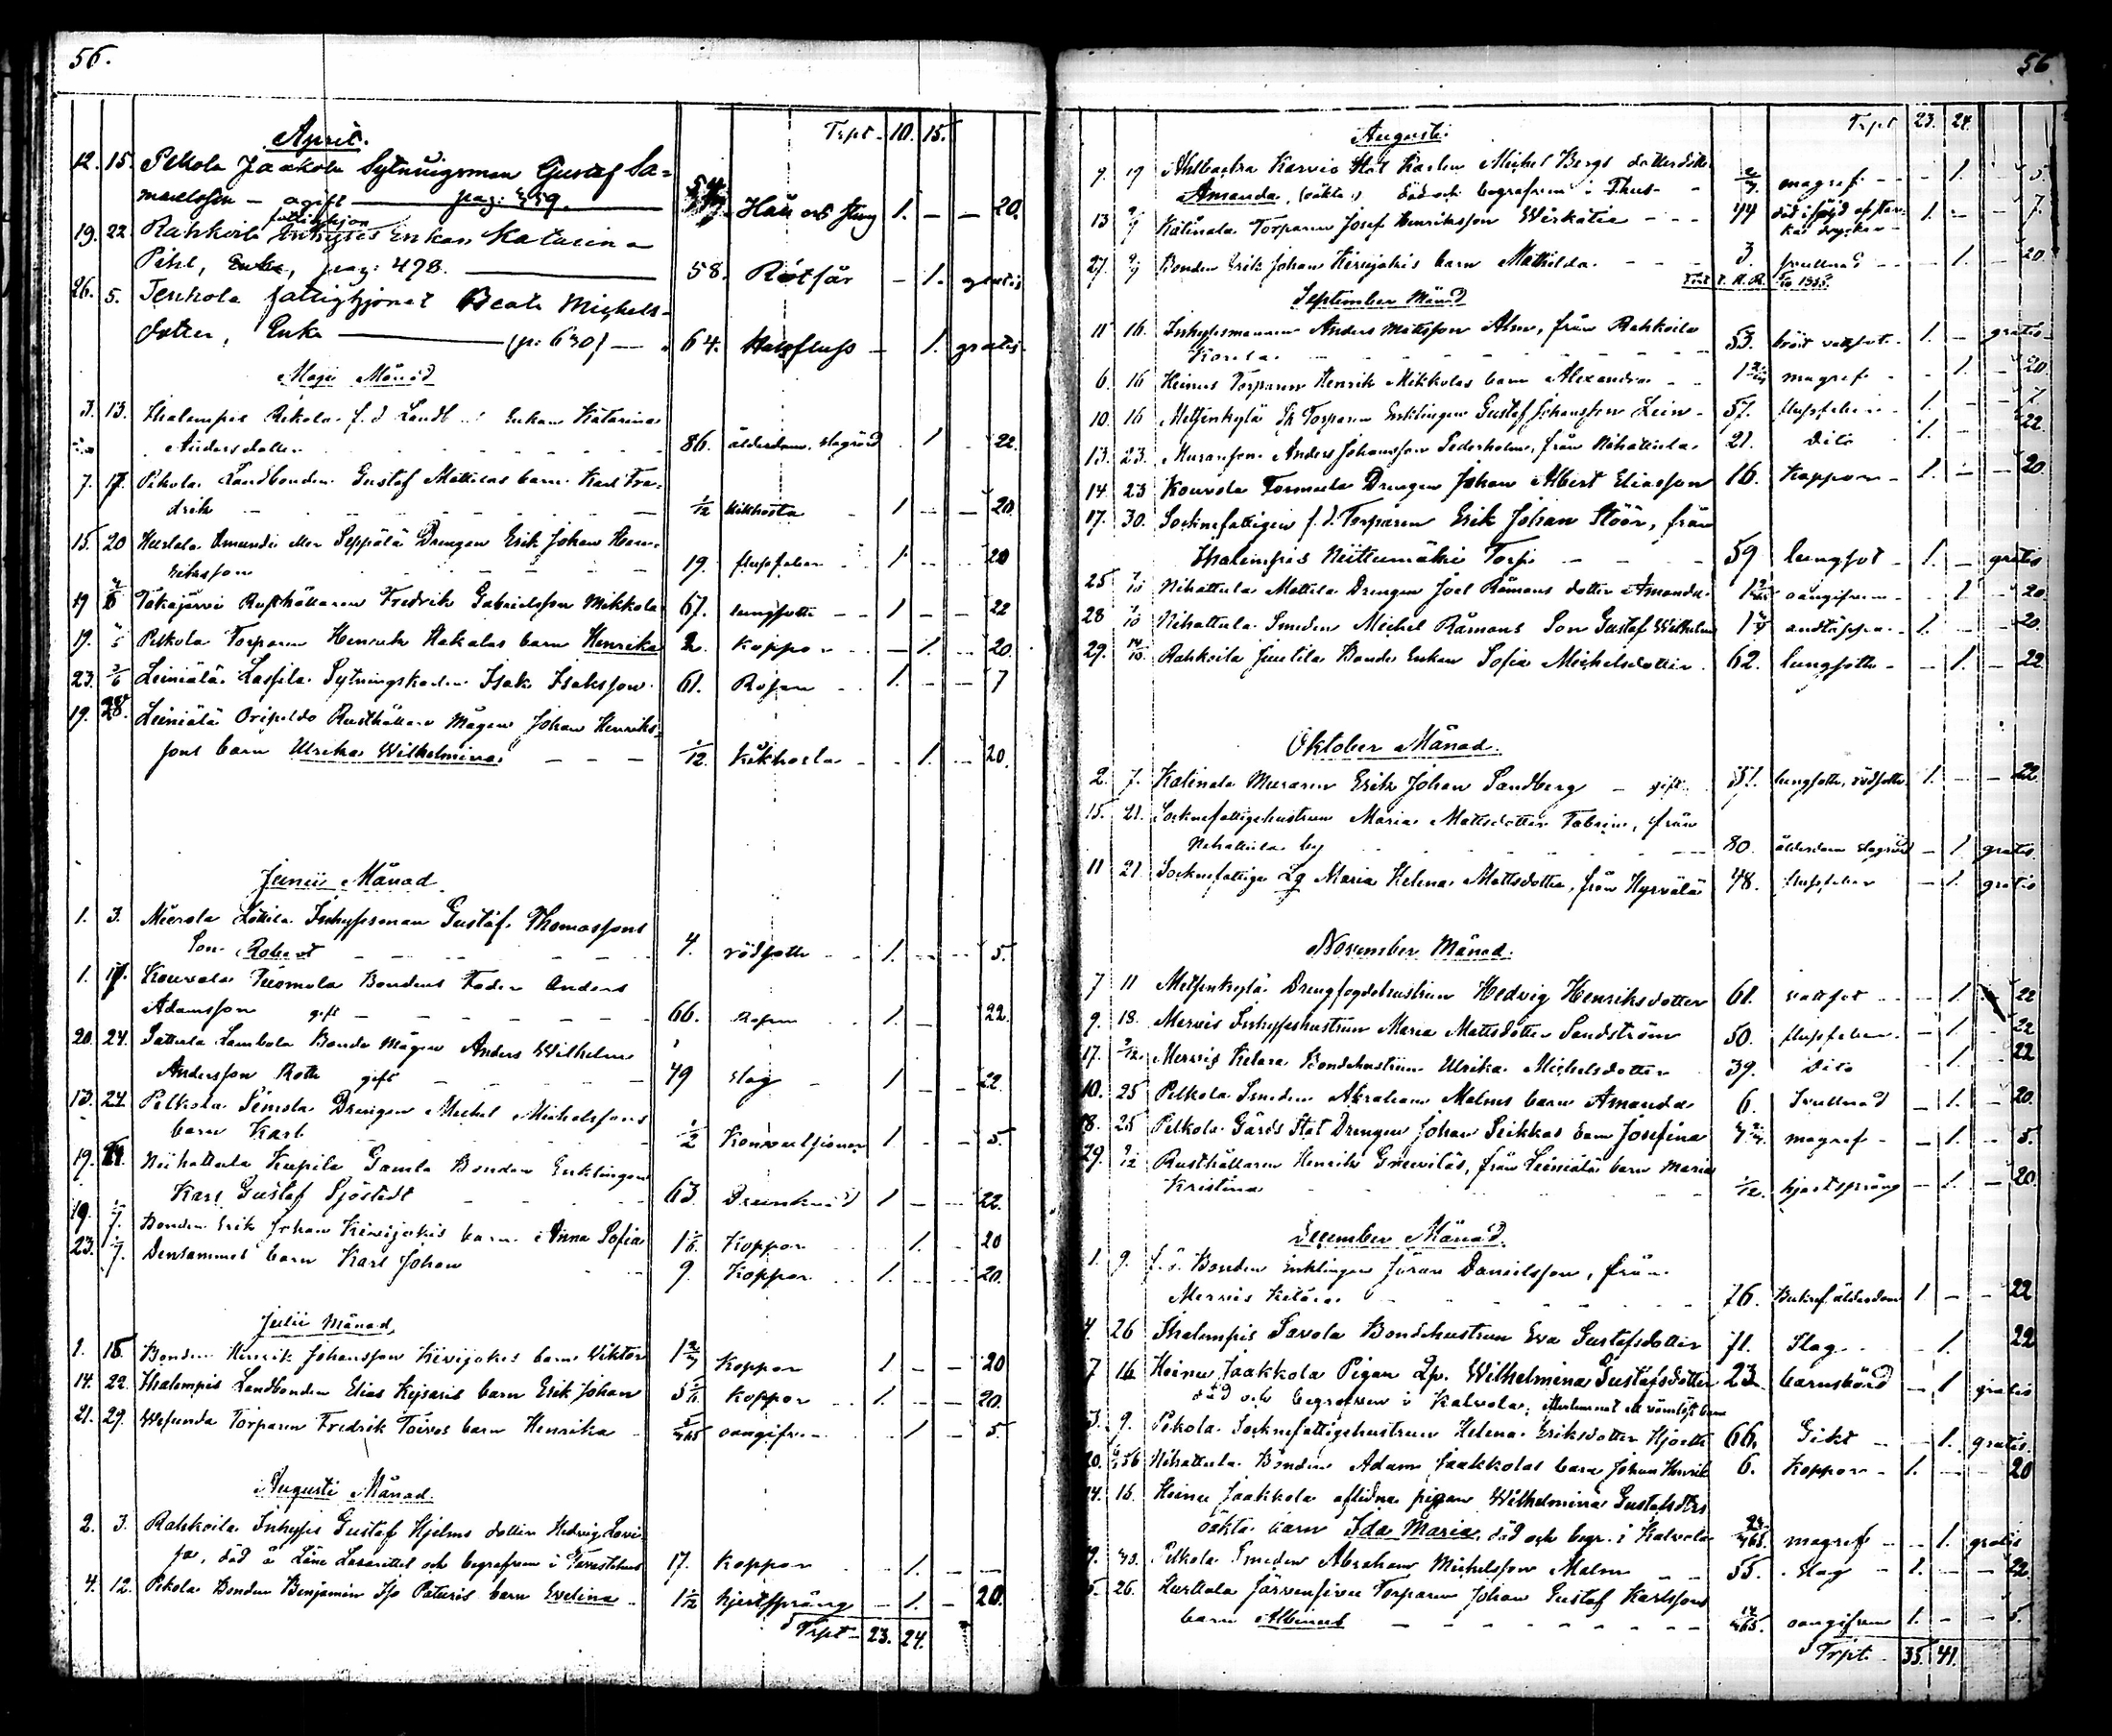 56.
April. Trpt. 10. 15.
12. 15. Pekola Jaakola Sytningsman Gustaf Sa=
muelsson — gift — pag: 559. Håll och styng 1. — — 20.
19. 22. Rahkoila fattighjon Inhyses Enkan Katarina
Pihl, Enka, pag: 478. — 58. Rötsår — 1. gratis
26. 5. Tenhola fattighjonet Beata Michels-
dotter, Enka — (p: 630) — 64. Halsfluss — 1. gratis
Maji Månad
3. 13. Thalempis Rekola f. d. Landb. Enkan Katarina
Andersdotter 86. ålderdom. slagrörd 1. 22.
7. 17. Pekola Landbonden Gustaf Mattilas barn Karl Fre-
drik 1/12 kikhosta 1 — — 20.
15. 20 Hurtala Amundi Seppälä Drengen Erik Johan Hen-
riksson 19. flussfeber 1. 20
19 Takajärvi Rusthållaren Fredrik Gabrielsson Mikkola 67. lungsoth — 1 — — 22
19. Pelkola Torparen Henrik Hakalas barn Henrika 2. Koppor — 1. 20.
23. Leiniälä Laspila Sytningskarlen Isak Isaksson 61. Rosen 1. — — 7
19. 28. Leiniälä Oripeldo Rusthållare Mågen Johan Henriks-
sons barn Ulrika Wilhelmina — — — 1/12. Kikhosta 1. 20.
Junii Månad.
1. 3. Mierola Lottila Inhysesman Gustaf Thomassons
Son Robert 4. rödsoth 1. 5.
1. 17. Kouvola Tuomola Bondens Fader Anders
Adamsson gift — 66. Rosen 1. 22.
20. 24. Sattula Lambola Bonde Mågen Anders Wilhelm
Andersson Roth gift 49 slag 1 22.
13. 24. Pelkola Simola Drengen Michel Michelssons
barn Karl 1/2 Konvulsioner 1. 5.
19. Nihattula Kupila Gamla Bonden Enklingen
Karl Gustaf Sjöstedt 63 Drunknad 1 — 22.
19. Bonden Erik Johan Kivijakis barn Anna Sofia Koppor 1. 20
23. Densammes barn Karl Johan 9. Koppor 1. 20.
Julii Månad.
1. 15. Bonden Henrik Johansson Kivijakis barn Viktor Koppor 1 — — 20
14. 22. Thalempis Landbonden Elias Kejsaris barn Erik Johan Koppor 1. — — 20.
21. 29. Wesunda Torparen Fredrik Toivos barn Henrika oangifven 1 5.
Augusti Månad.
2. 3. Rahkoila Inhyses Gustaf Hjelms dotter Hedvig Lovi-
sa, död å Läne Lazarettet och begrafven i Tavastehus 17. Koppor 1. —
4. 12. Pekola Bonden Benjamin Paturis barn Evelina hjertsprång — 1. — 20.
Trpt — 23. 24.
56
Augusti Trpt 23. 24.
9. 19 Karvis Stat Karlen Michel Bergs dotterdotter
Amanda, (oäkta) död och begrafven i Thus magref — 1. 5.
13 Katinala Torparen Josef Henriksson Wirkätie — — — 44 död i följd af star-
ka drycker 1. — 7.
27. Bonden Erik Johan Kivijakis barn Mathilda 3. svullnad — 1. 20.
September Månad
11 16. Inhysesmannen Anders Mattsson Alm, från Rahkoila
53. bröst vattsot 1. — gratis
6. 16 Heinus Torparen Henrik Mikkolas barn Alexandra magref 1. 20.
10. 16 Metsänkylä Torparen Enklingen Gustaf Johansson Lein 57. flussfeber 1. 7
13. 23. Anders Johansson Sederholm, från Nihattula 21. Dito 1. 22.
14. 23 Kouvola Tormula Drengen Johan Albert Eliasson 16. Koppor 1. — — 20
17. 30. Socknefattigen f. d. Torparen Erik Johan Stöör, från
Thalempis Niittumäki Torp — 59 lungsot 1. gratis
25 Nihattula Mattila Drengen Joel Råmans dotter Amanda oangifven 1 20
28 Nihattula Smeden Michel Råmans Son Gustaf Wilhelm andtäppa 1. 20.
29. Rahkoila Juutila Bonde Enkan Sofia Michelsdotter 62. lungsoth — 1. — 22
Oktober Månad.
2. 7. Katinala Muraren Erik Johan Sandberg — gift 51. lungsoth, rödsoth 1. — — 22
15. 21. Socknefattighustrun Maria Mattsdotter Fabrin, från
Nihattula by 80. ålderdom slagrörd — 1 gratis
11 21. Socknefattiga Maria Helena Mattsdotter, från Hyrvälä 48. flussfeber — 1. gratis
November Månad.
7 11 Metsänkylä Drengfogdehustrun Hedvig Henriksdotter 61. vattsot 1. 22
9. 18. Mervis Inhyseshustrun Maria Mattsdotter Sandström 50. flussfeber 1. 22
17. Mervis Ketara Bondehustrun Ulrika Michelsdotter 39. Dito 1. 22
10. 25 Pelkola Smeden Abraham Malms barn Amanda 6. Svullnad — 1. 20.
18. 25 Pelkola Gårds Stat Drengen Johan Seikkas barn Josefina magref — 1. 5.
29. Rusthållaren Henrik Greviläs, från Leiniälä barn Maria
Kristina 1/12. hjertsprång — 1. — 20
December Månad.
1. 9. f. d. Bonden Enklingen Jöran Danielsson, från
Mervis Ketara 76. Bukref. ålderdom 1 — — 22
4. 26 Thalempis Savola Bondehustrun Eva Gustafsdotter 71. Slag 1. 22
7 16 Heinu Jaakkola Pigan Wilhelmina Gustafsdotter 23 barnsbörd — 1 gratis
död och begrafven i Kalvola,
3. 9. Pekola Socknefattighustrun Helena Eriksdotter Hjorth 66. Gikt 1. gratis.
20. Nihattula Bonden Adam Jaakkolas barn Johan Henrik 6. Koppor 1. 20
14. 16. Heinu Jaakkola aflidna pigan Wilhelmina Gustafsdtrs
oäkta barn Ida Maria, död och begr. i Kalvola magref — 1. gratis
30. Pelkola Smeden Abraham Michelsson Malm 55. Slag 1. 22
26. Hurttala Järvensivu Torparen Johan Gustaf Karlssons
barn Albinus oangifven 1. — — 5.
Trpt. 35. 41.